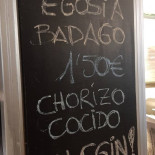 EGOSIA
BADAGO
1'50€
CHORIZO
COCIDO